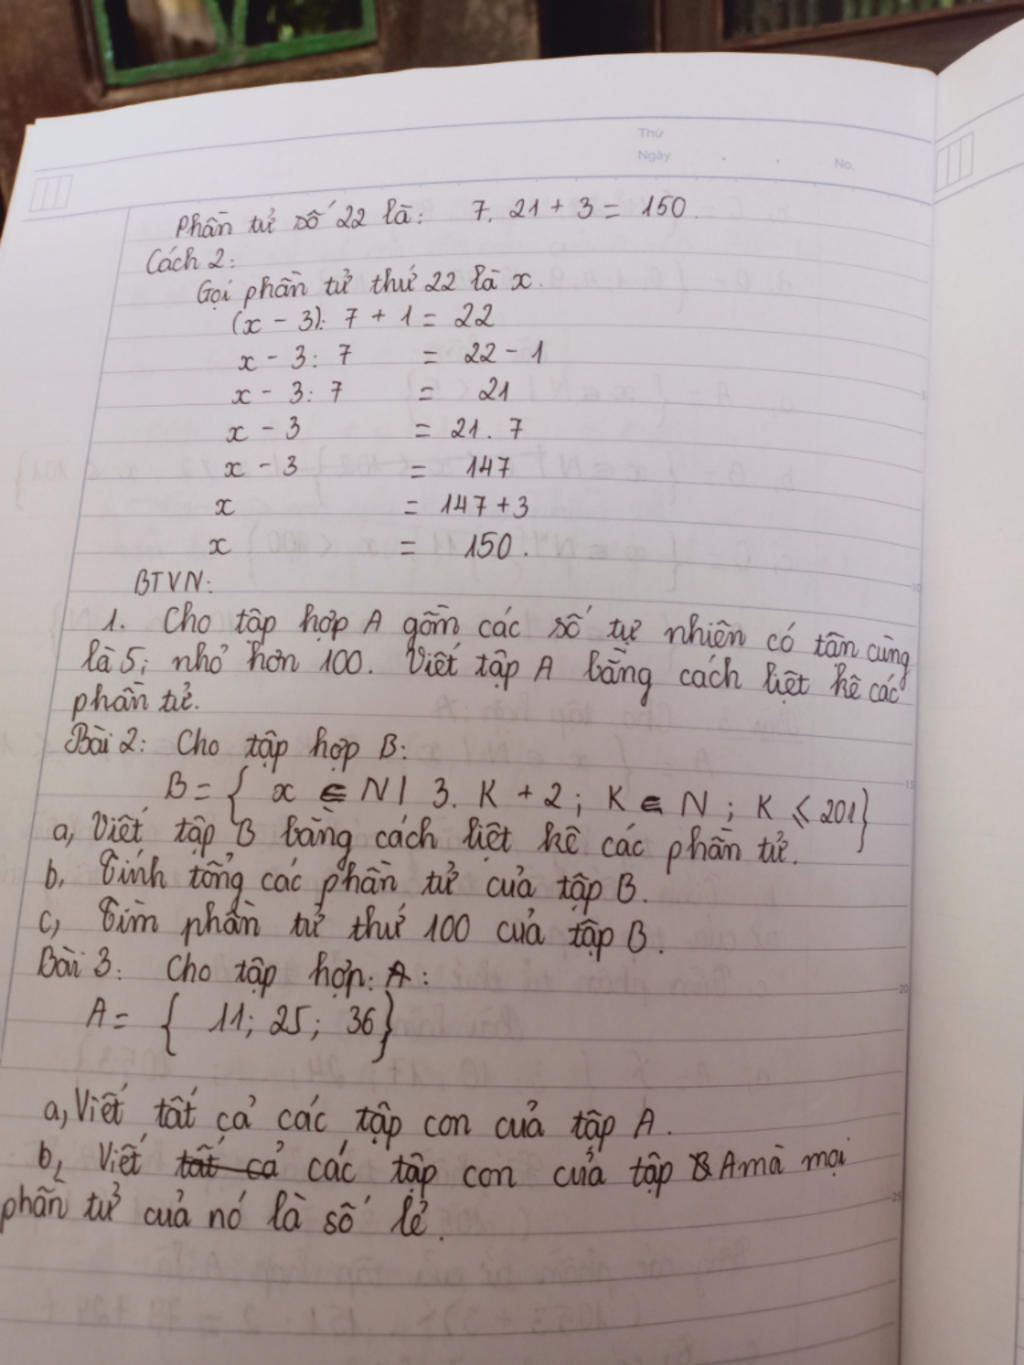 Thứ
Ngày . . No.
Phần tử số 22 là: 7. 21 + 3 = 150.
Cách 2:
Gọi phần tử thứ 22 là x.
(x - 3): 7 + 1 = 22
x - 3: 7 = 22 - 1
x - 3: 7 = 21
x - 3 = 21. 7
x - 3 = 147
x = 147 + 3
x = 150.
BTVN:
1. Cho tập hợp A gồm các số tự nhiên có tận cùng
là 5; nhỏ hơn 100. Viết tập A bằng cách liệt kê các
phần tử.
Bài 2: Cho tập hợp B:
B = { x ∈ N | 3. K + 2; K ∈ N; K ⩽ 201}
a, Viết tập B bằng cách liệt kê các phần tử.
b, Tính tổng các phần tử của tập B.
c, Tìm phần tử thứ 100 của tập B.
Bài 3: Cho tập hợp: A:
A = { 11; 25; 36}
a, Viết tất cả các tập con của tập A.
b, Viết tất cả các tập con của tập A mà mọi
phần tử của nó là số lẻ.